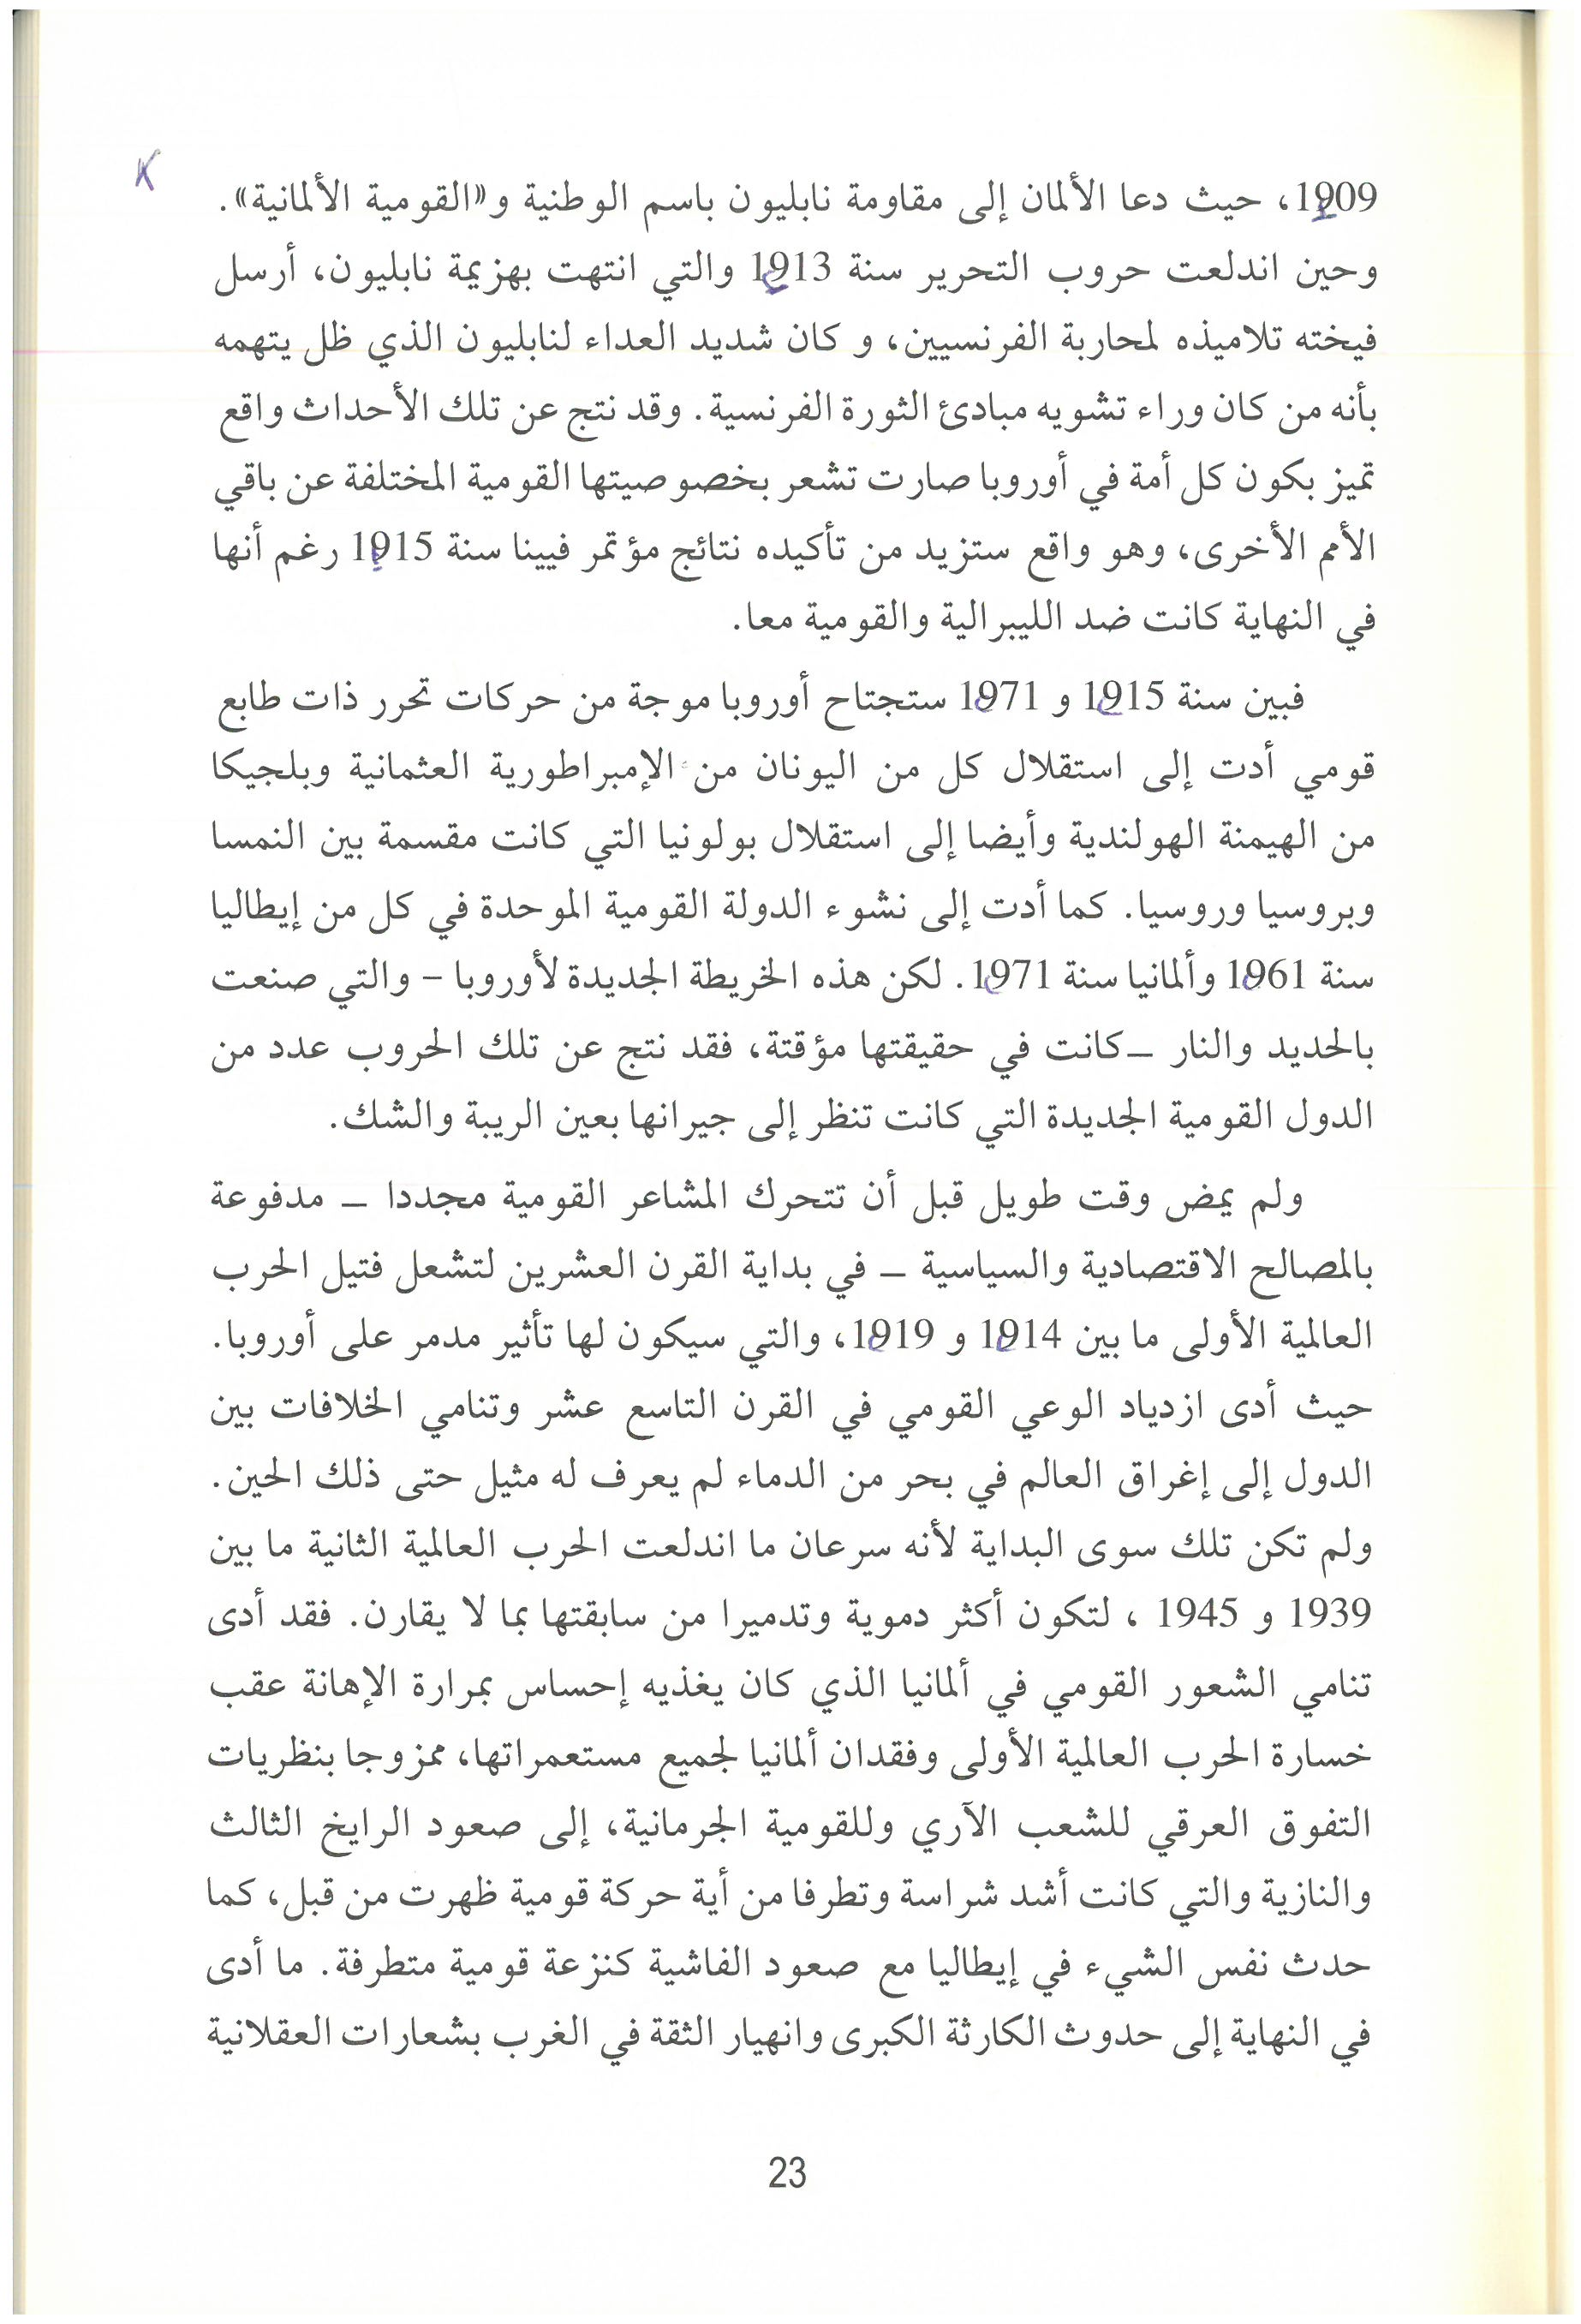 1909، حيث دعا الألمان إلى مقاومة نابليون باسم الوطنية و«القومية الألمانية».
وحين اندلعت حروب التحرير سنة 1913 والتي انتهت بهزيمة نابليون، أرسل
فيخته تلاميذه لمحاربة الفرنسيين، و كان شديد العداء لنابليون الذي ظل يتهمه
بأنه من كان وراء تشويه مبادئ الثورة الفرنسية. وقد نتج عن تلك الأحداث واقع
تميز بكون كل أمة في أوروبا صارت تشعر بخصوصيتها القومية المختلفة عن باقي
الأمم الأخرى، وهو واقع ستزيد من تأكيده نتائج مؤتمر فيينا سنة 1915 رغم أنها
في النهاية كانت ضد الليبرالية والقومية معا.
فبين سنة 1915 و 1971 ستجتاح أوروبا موجة من حركات تحرر ذات طابع
قومي أدت إلى استقلال كل من اليونان من الإمبراطورية العثمانية وبلجيكا
من الهيمنة الهولندية وأيضا إلى استقلال بولونيا التي كانت مقسمة بين النمسا
وبروسيا وروسيا. كما أدت إلى نشوء الدولة القومية الموحدة في كل من إيطاليا
سنة 1961 وألمانيا سنة 1971. لكن هذه الخريطة الجديدة لأوروبا – والتي صنعت
بالحديد والنار –كانت في حقيقتها مؤقتة، فقد نتج عن تلك الحروب عدد من
الدول القومية الجديدة التي كانت تنظر إلى جيرانها بعين الريبة والشك.
ولم يمض وقت طويل قبل أن تتحرك المشاعر القومية مجددا – مدفوعة
بالمصالح الاقتصادية والسياسية – في بداية القرن العشرين لتشعل فتيل الحرب
العالمية الأولى ما بين 1914 و 1919، والتي سيكون لها تأثير مدمر على أوروبا.
حيث أدى ازدياد الوعي القومي في القرن التاسع عشر وتنامي الخلافات بين
الدول إلى إغراق العالم في بحر من الدماء لم يعرف له مثيل حتى ذلك الحين.
ولم تكن تلك سوى البداية لأنه سرعان ما اندلعت الحرب العالمية الثانية ما بين
1939 و 1945 ، لتكون أكثر دموية وتدميرا من سابقتها بما لا يقارن. فقد أدى
تنامي الشعور القومي في ألمانيا الذي كان يغذيه إحساس بمرارة الإهانة عقب
خسارة الحرب العالمية الأولى وفقدان ألمانيا لجميع مستعمراتها، ممزوجا بنظريات
التفوق العرقي للشعب الآري وللقومية الجرمانية، إلى صعود الرايخ الثالث
والنازية والتي كانت أشد شراسة وتطرفا من أية حركة قومية ظهرت من قبل، كما
حدث نفس الشيء في إيطاليا مع صعود الفاشية كنزعة قومية متطرفة. ما أدى
في النهاية إلى حدوث الكارثة الكبرى وانهيار الثقة في الغرب بشعارات العقلانية
23